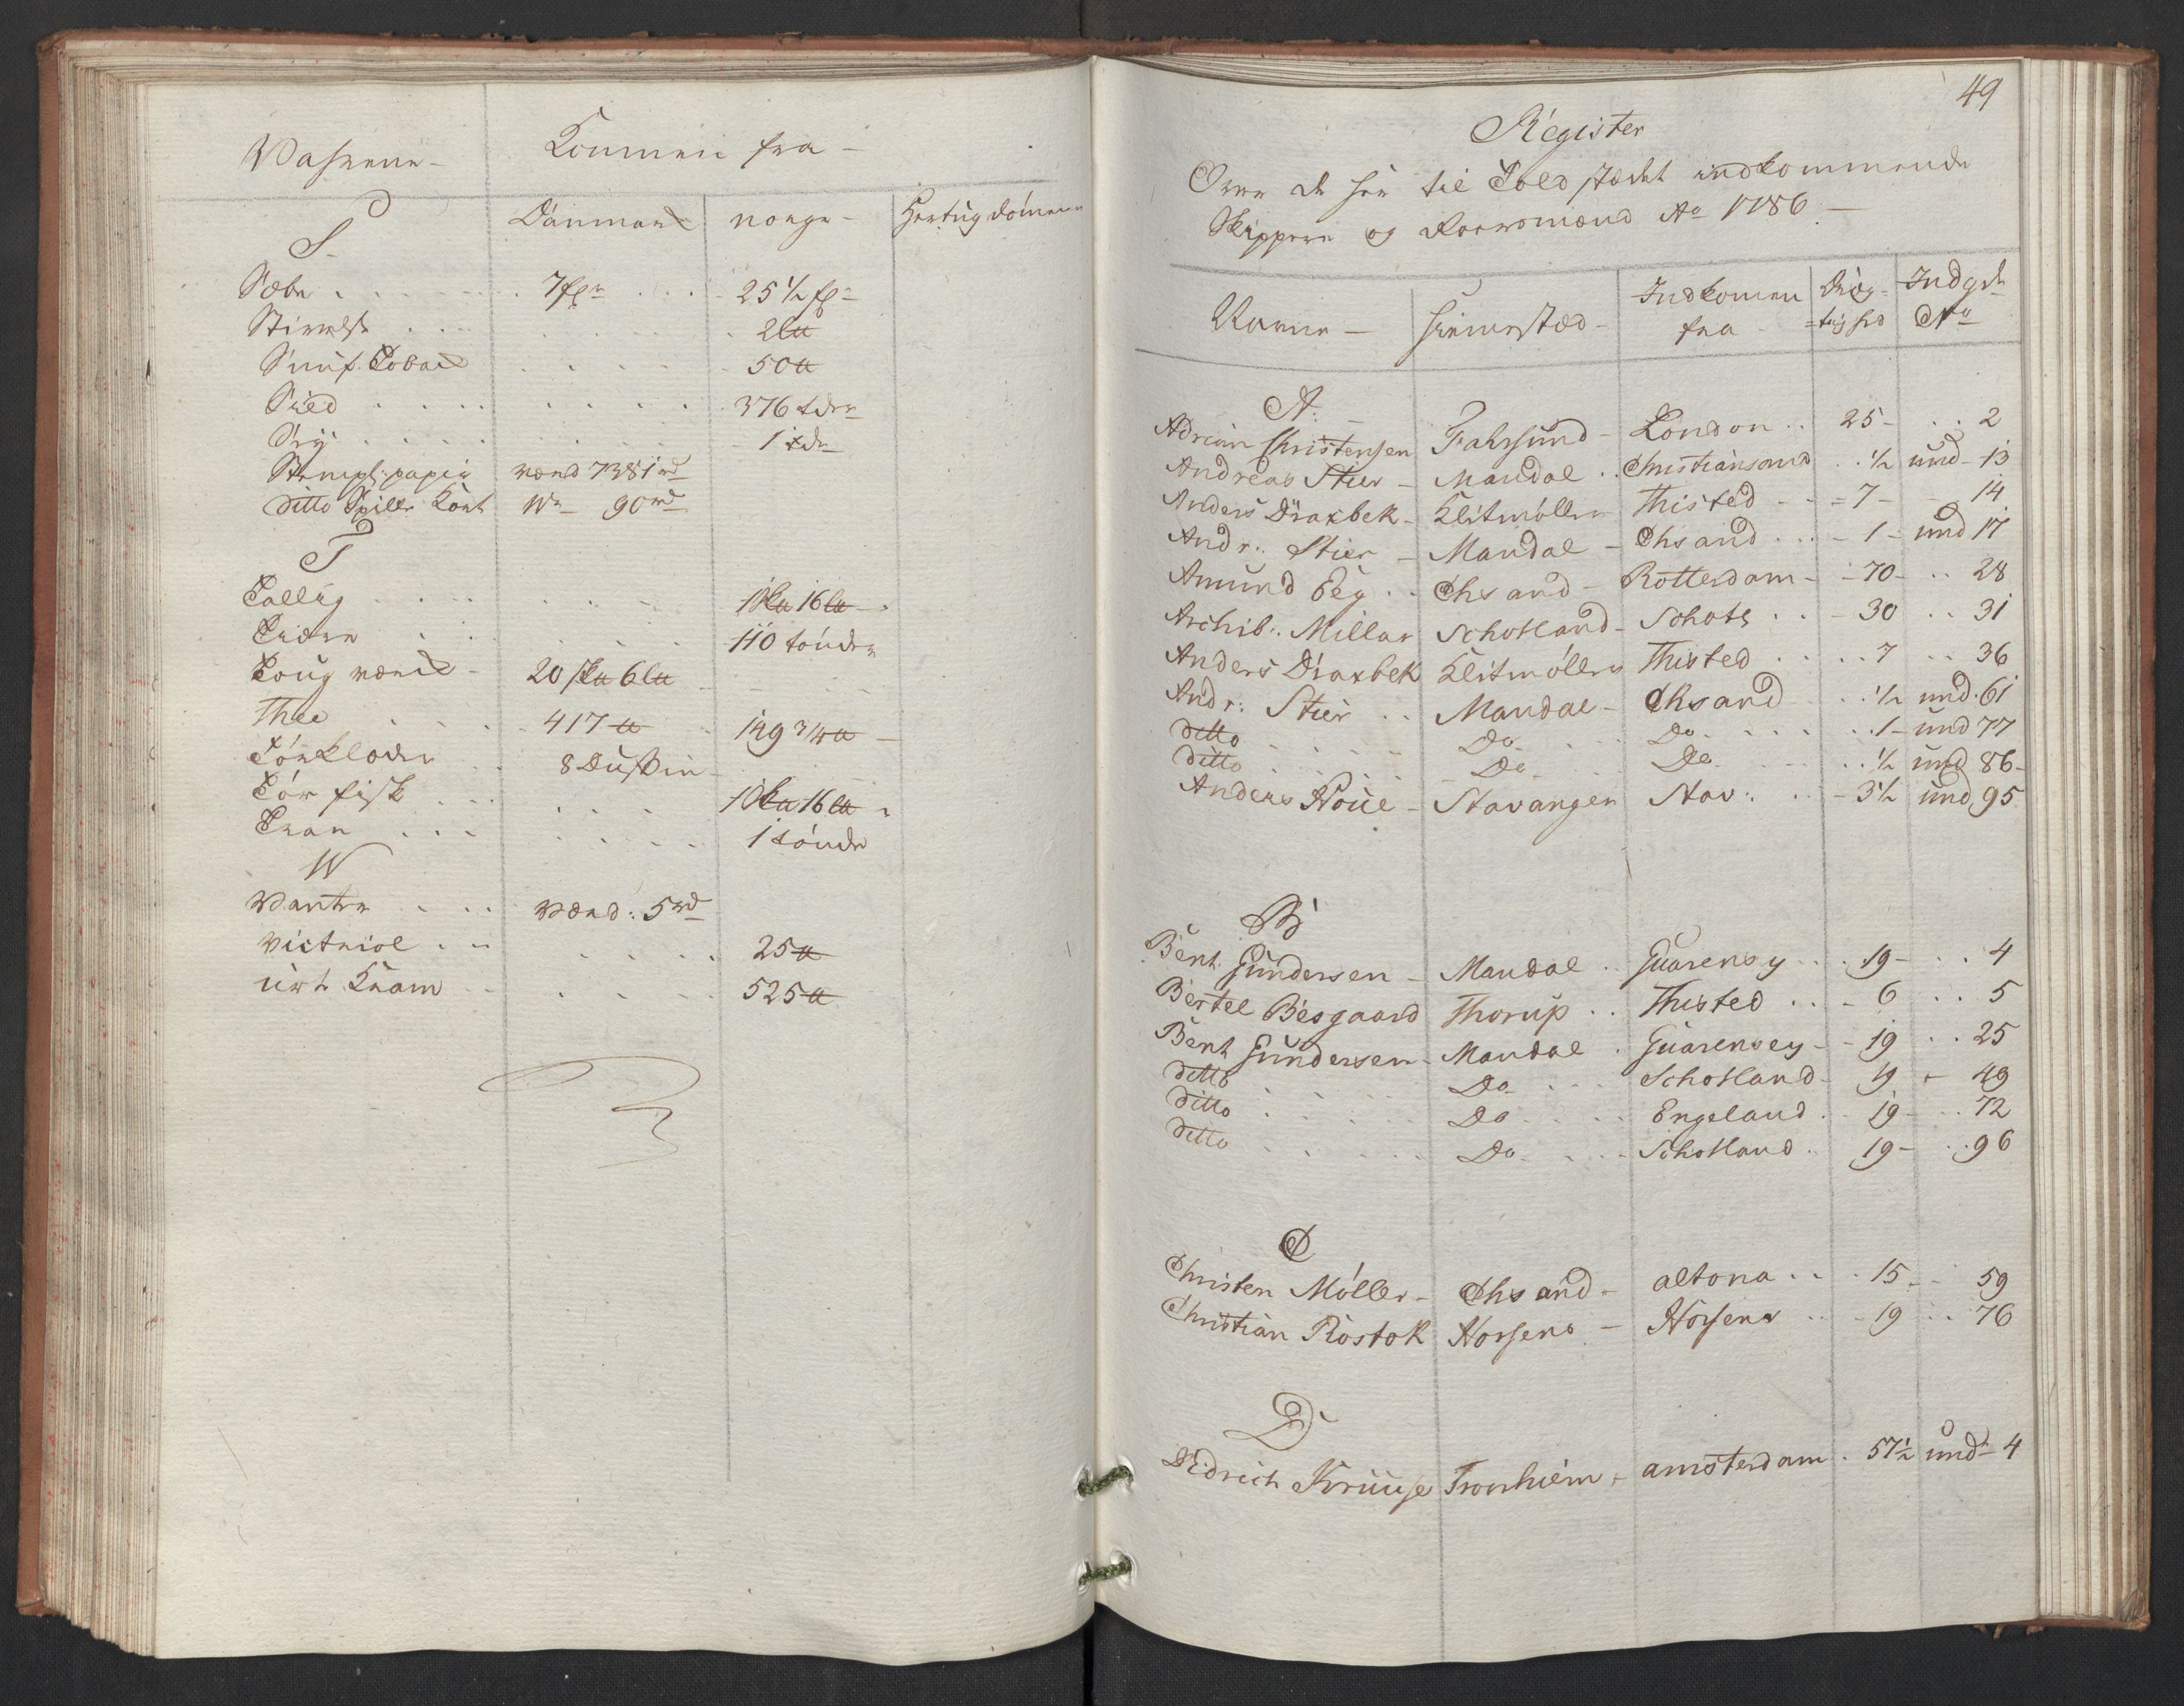 Vahrene - Kommen fra -
Danmark norge - Hertugdömene
S
Sæbe . . . 7 fl . . 25 1/2 fl
Stivelse . . . 2 lt
Snuf Toback . . . 50 lt
Sild . . . 376 tdr
Sty . . . 1 tde
Stempl: papir værd 738 1 rd
ditto Spille Kort W 90 rd
T
Tallig . . . 16 lt
Tiære . . . 110 tönder
Toug værck - 20 skt 6 lt
Thee . . . 417 lt . 149 3/4 lt -
Törklæder . . 8 Dussin
Tör fisk . . . 16 lt
Tran . . . 1 tönde
W
Vanter . . . værd: 5 rd
Victriol . . . 25 lt
urte Kram . . . 525 lt
49
Register
Over de her til Told stædet indkommende
Skippere og Koersmænd Ao 1786 -
Navne - Hiemstæd - Indkomen fra Dræg=tighed Indgde No
A:
Adrian Christensen Fahrsund - London . . 25 - . . 2
Andreas Stier - Mandal . . Christiansand . . 1/2 und - 13
Anders Draxbek - Klitmöller Thisted - - 7 - 14
Andr: Stier - Mandal - Chsand . . . - 1 - und 17
Amund Eeg . . Chsand - Rotterdam - - 70 - . . 28
Archib: Millar Schotland - Schotl . . - 30 . . 31
Anders Draxbek Klitmöller Thisted . . . . 7 . . 36
Andr: Stier . . Mandal - Chsand . . 1/2 und. 61
ditto . . . Do . . . Do . . . . 1 - und 77
ditto . . . Do . . . Do . . . 1/2 und 86 -
Anders Houe - Stavanger Stav: . . - 3 1/2 und 95
B
Bent Gundersen - Mandal . . Guarensy . . . 19 - . . 4
Bertel Besgaard Thorup . . Thisted . . . - 6 . . 5
Bent Gundersen - Mandal . Guarensey - - 19 . . 25
ditto . . . Do . . . Schotland - 19 - 49
ditto . . . Do . . . Engeland . . 19 - . . 72
ditto . . . Do . . . Schotland . . 19 - . . 96
C
Christen Möller - Chsand - altona . . . 15 - . 59
Christian Rostok Horsens - Horsens . . - 19 . . 76
D
Didrich Kruuse Tronhiem - amsterdam . 57 1/2 und - 4